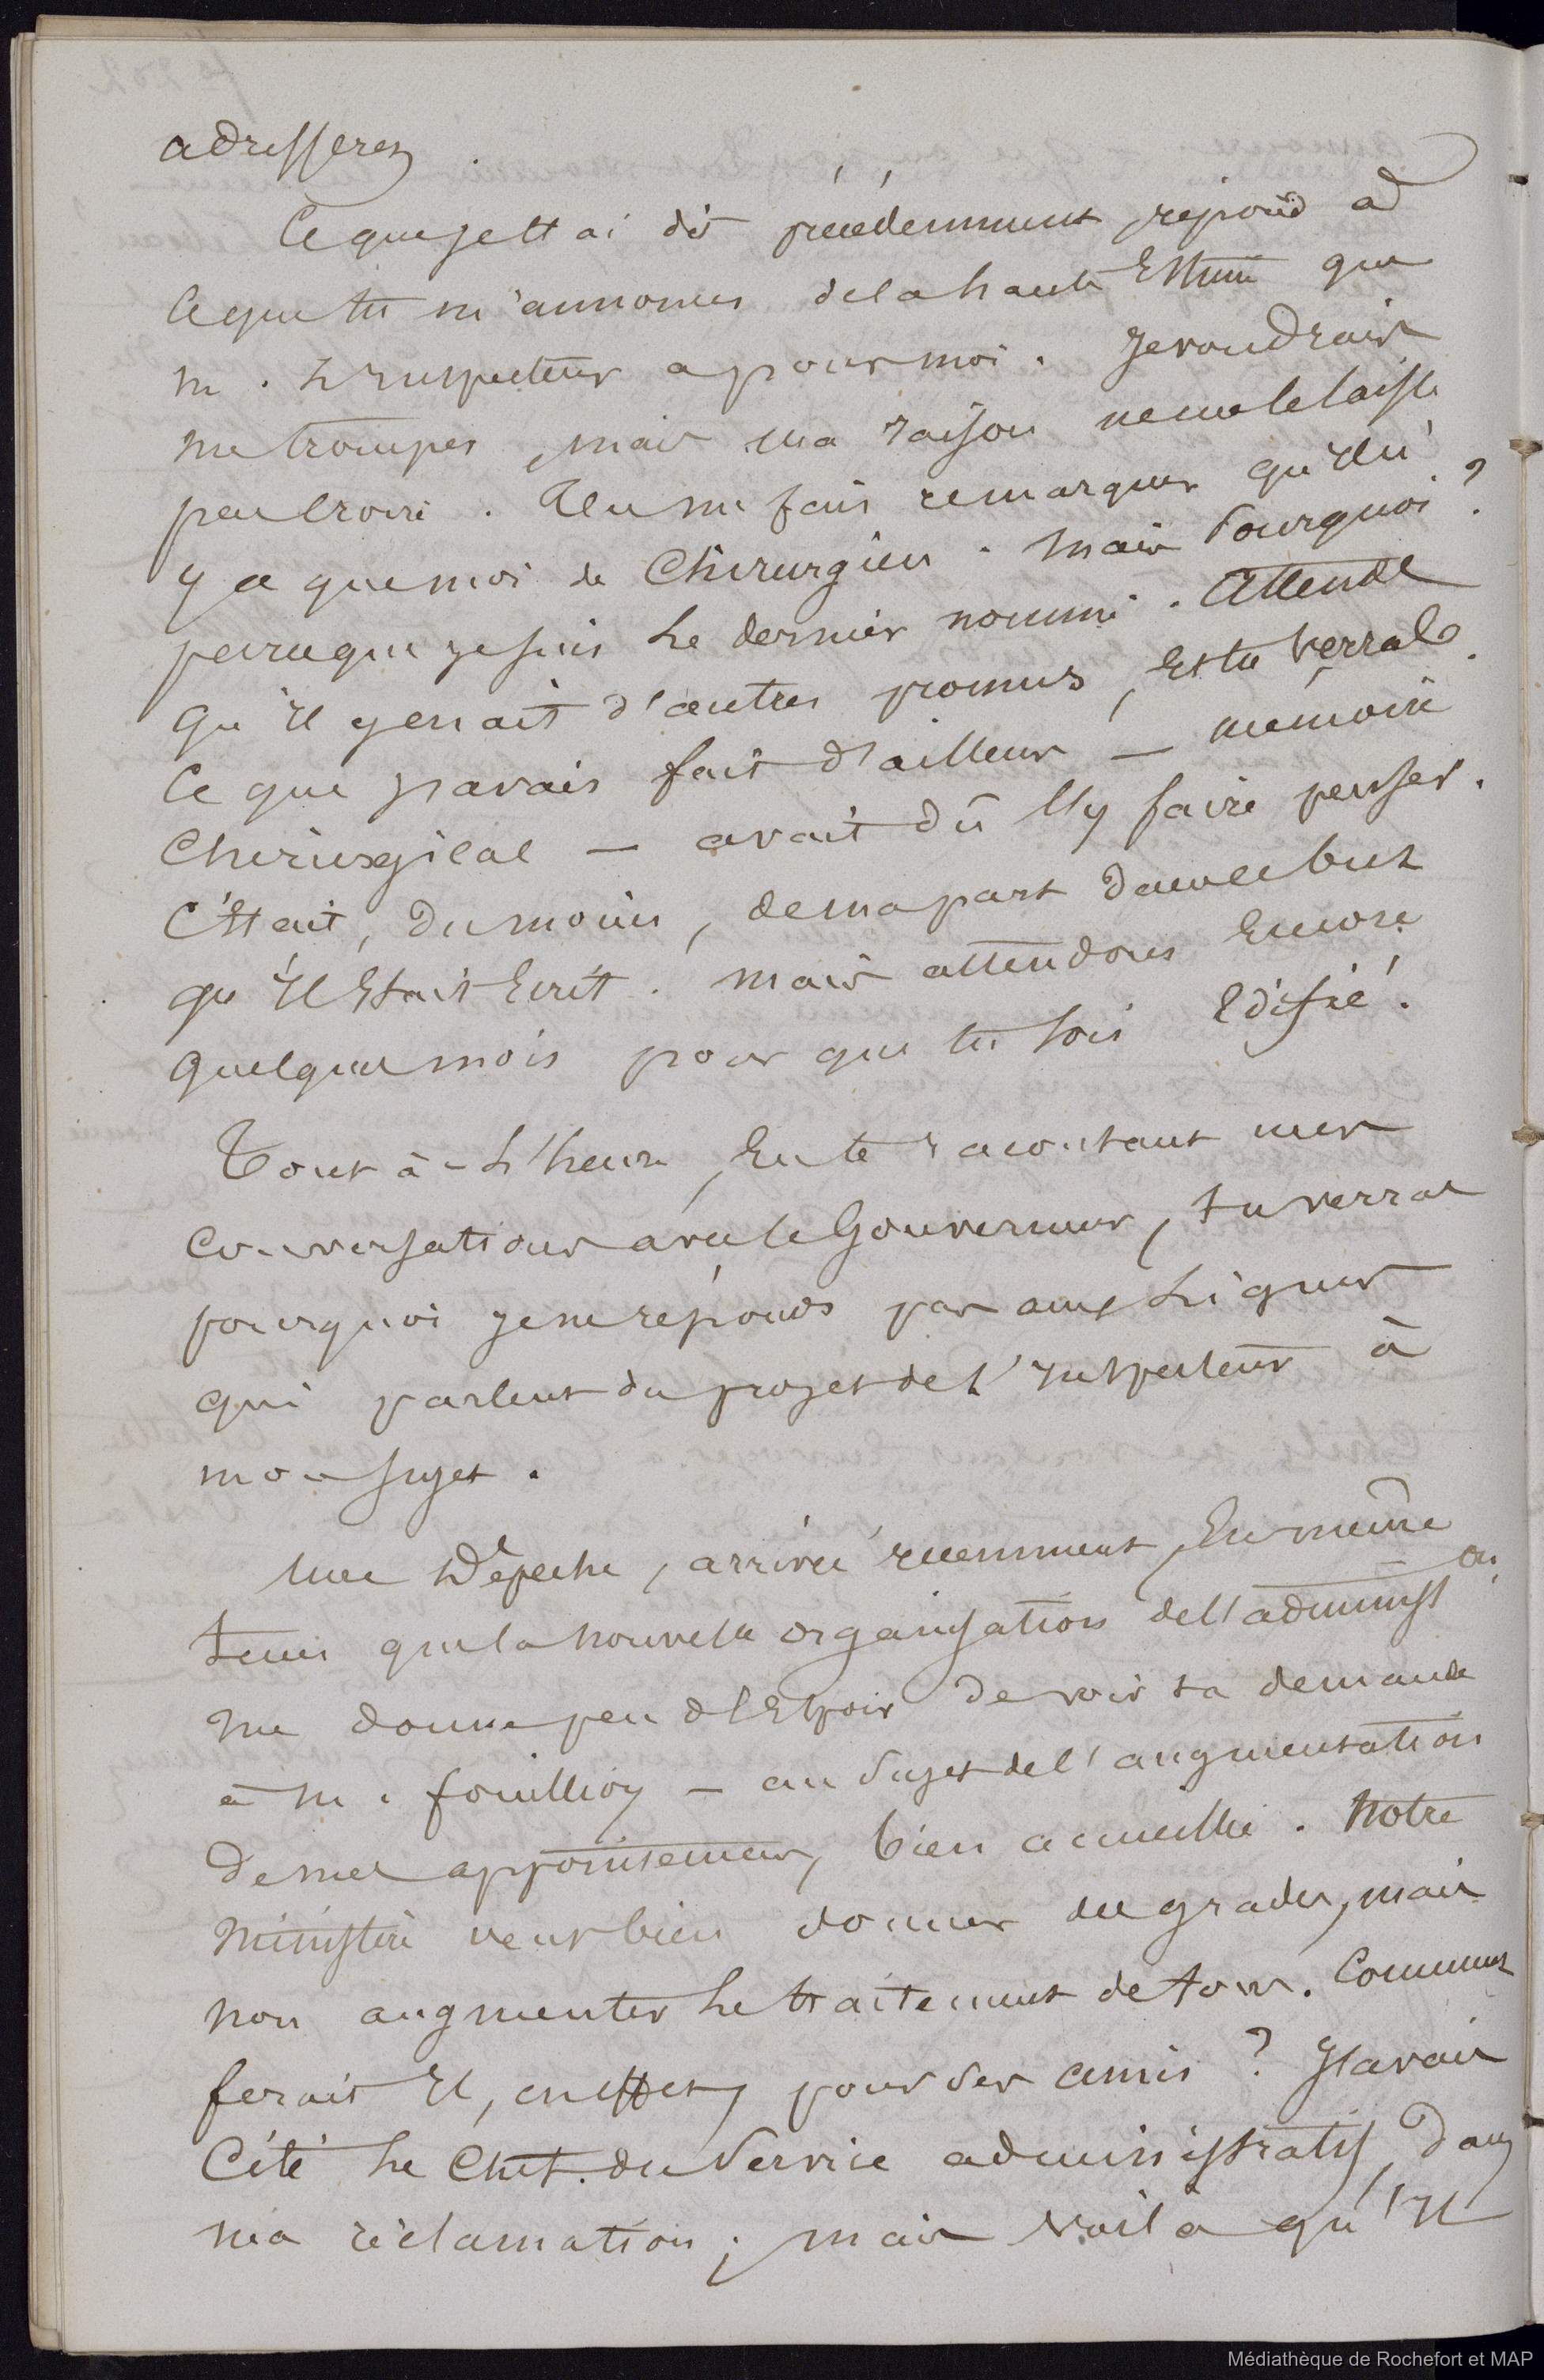 adresserez
Ce que je t'ai dit précédemment répond à
ce que tu m'annonces de la haute Estime que
m. L'Inspecteur a pour moi. Je voudrais
me tromper, mais ma raison ne me le laisse
pas croire. Tu me fais remarquer qu'il n'
y a que moi de Chirurgien. Mais Pourquoi ?
parce que je suis Le dernier nommé. Attends
qu'il y en ait d'autres promus, Et tu verras.
Ce que j'avais fait d'ailleurs — mémoire
Chirurgical — avait dû t'y faire penser.
C'était, du moins, de ma part dans ce but
qu'il Etait Ecrit. Mais attendons Encore
quelques mois pour que tu sois Edifié.
Tout à-L'heure, En te racontant mes
conversations avec le Gouverneur, tu verras
pourquoi je ne réponds pas aux Lignes
qui parlent du projet de L'Inspecteur à
mon sujet.
Une Dépêche, arrivée récemment, En même
tems que la nouvelle organisation de l'administ on,
me donne peu d'Espoir de voir ta demande
à M. fouillioy — au Sujet de l'augmentation
de mes appointemens, bien accueillie. Notre
Ministère veut bien donner des grades, mais
non augmenter Le traitement de tous. Comment
ferait Il, en effet, pour ses amis ? J'avais
Cité Le Chef du Service administratif, dans
ma réclamation ; mais voilà qu'Il
Médiathèque de Rochefort et MAP